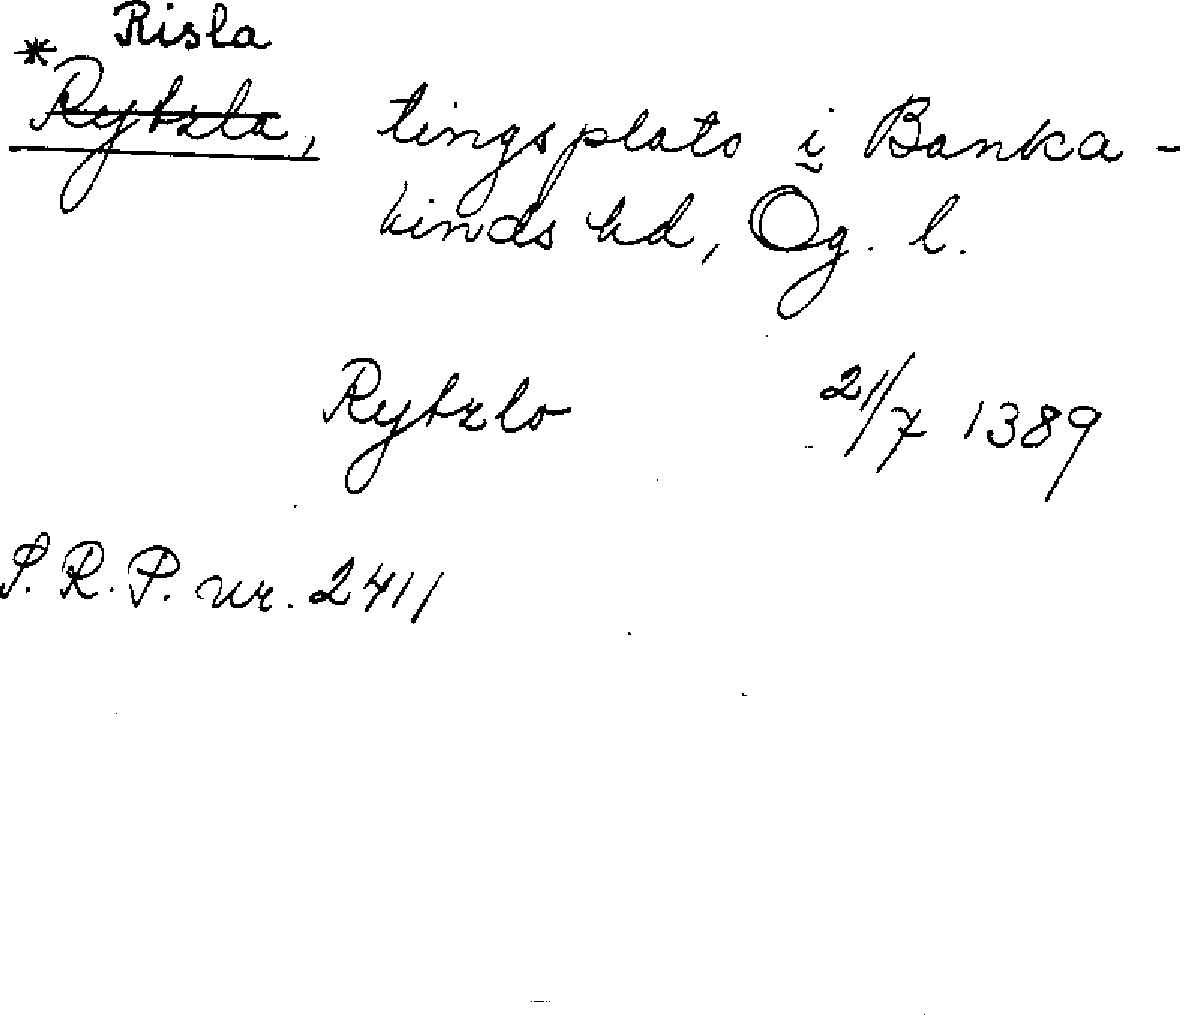 Risla
* Rytzla, tingsplats i Banka-
kinds hd, Ög. l.
Rytzlo 21/7 1389
S.R.P. nr. 2411